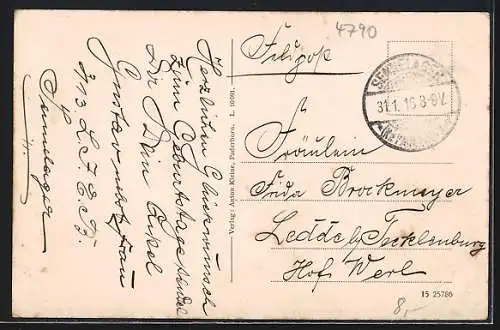 4790
Feldpost
SENNELAGER
31.1.15 8-9V.
Fräulein
Frida Brockmeyer
Ledde b/ Tecklenburg
Hof Werl
15 25786
8,-
Verlag: Anton Kleine, Paderborn. L.
Herzlichen Glückwunsch
zum Geburtstage sendet
Dir Dein Onkel
Gustav nebst Frau
Sennelager